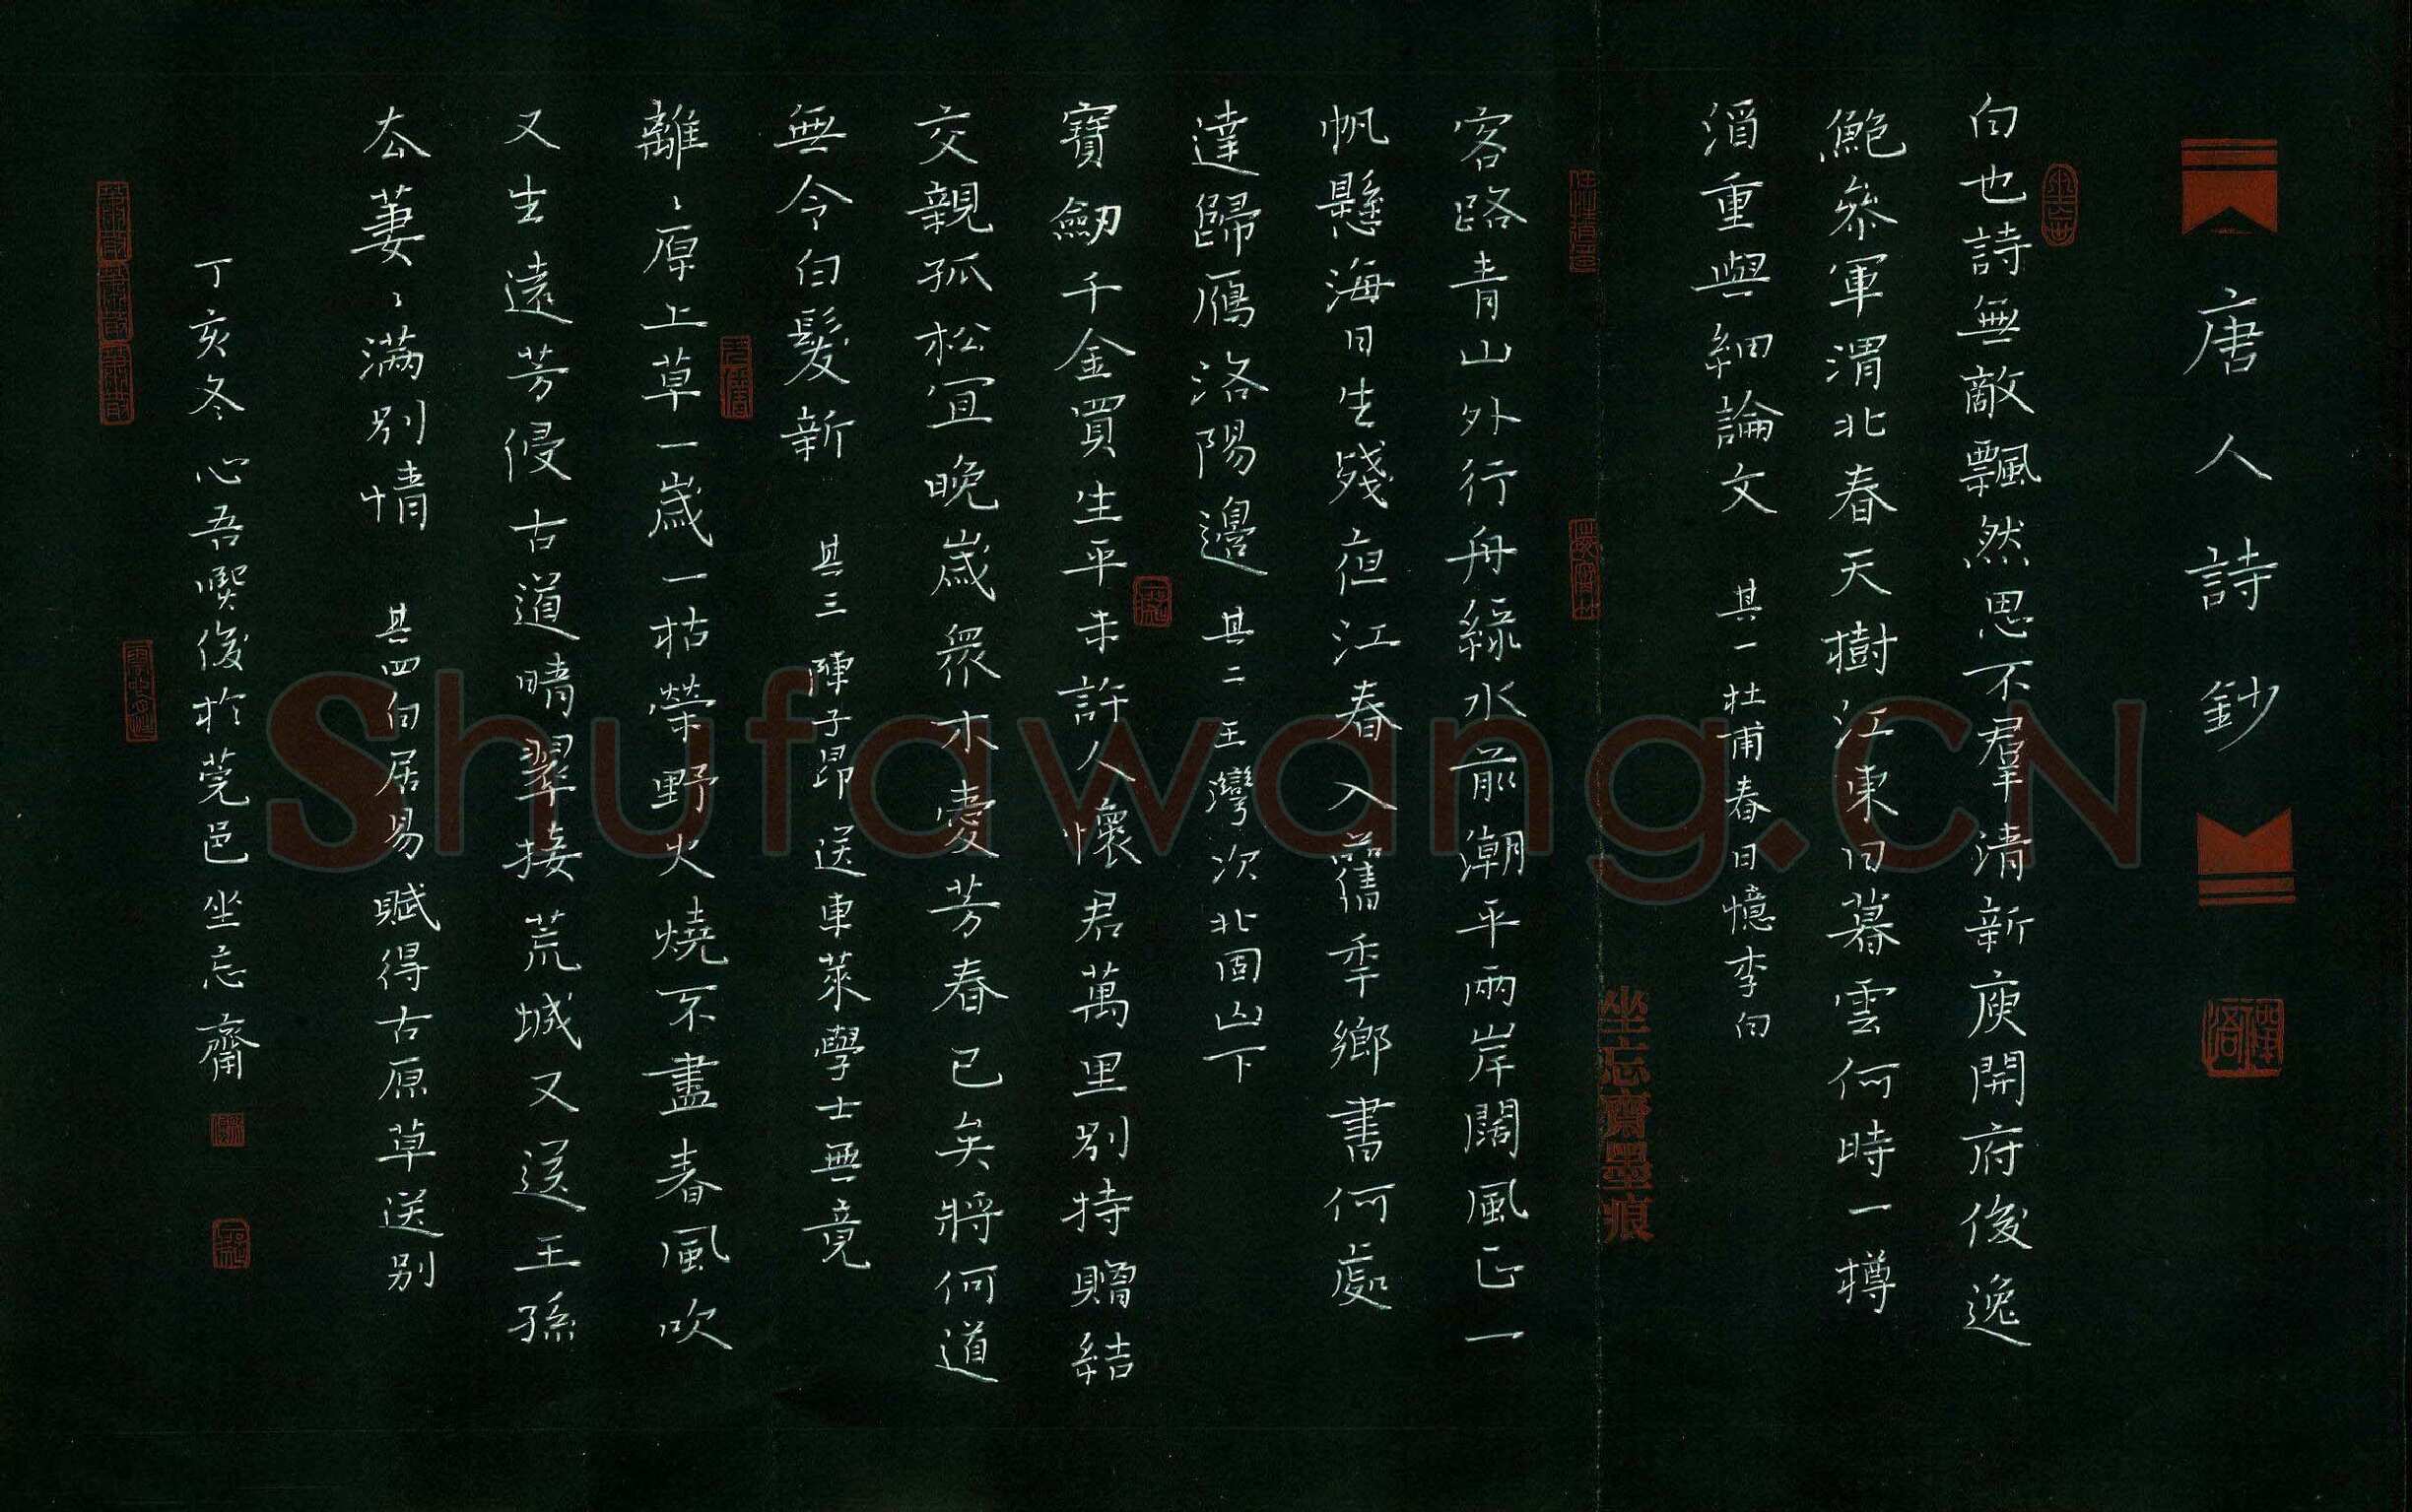 唐人詩鈔
白也詩無敵飄然思不羣清新庾開府俊逸
鮑參軍渭北春天樹江東日暮雲何時一樽
酒重與細論文 其一杜甫春日憶李白
客路青山外行舟綠水前潮平兩岸闊風正一
帆懸海日生殘夜江春入舊年鄉書何處
達歸鴈洛陽邊 其二王灣次北固山下
寶劒千金買生平未許人懷君萬里別持贈結
交親孤松宜晚歲眾木愛芳春已矣將何道
無令白髮新 其三陳子昂送東萊學士無竟
離〻原上草一歲一枯榮野火燒不盡春風吹
又生遠芳侵古道晴翠接荒城又送王孫
去萋〻滿別情 其四白居易賦得古原草送別
丁亥冬心吾喫後於莞邑坐忘齋
坐忘齋墨痕
Shufawang.CN